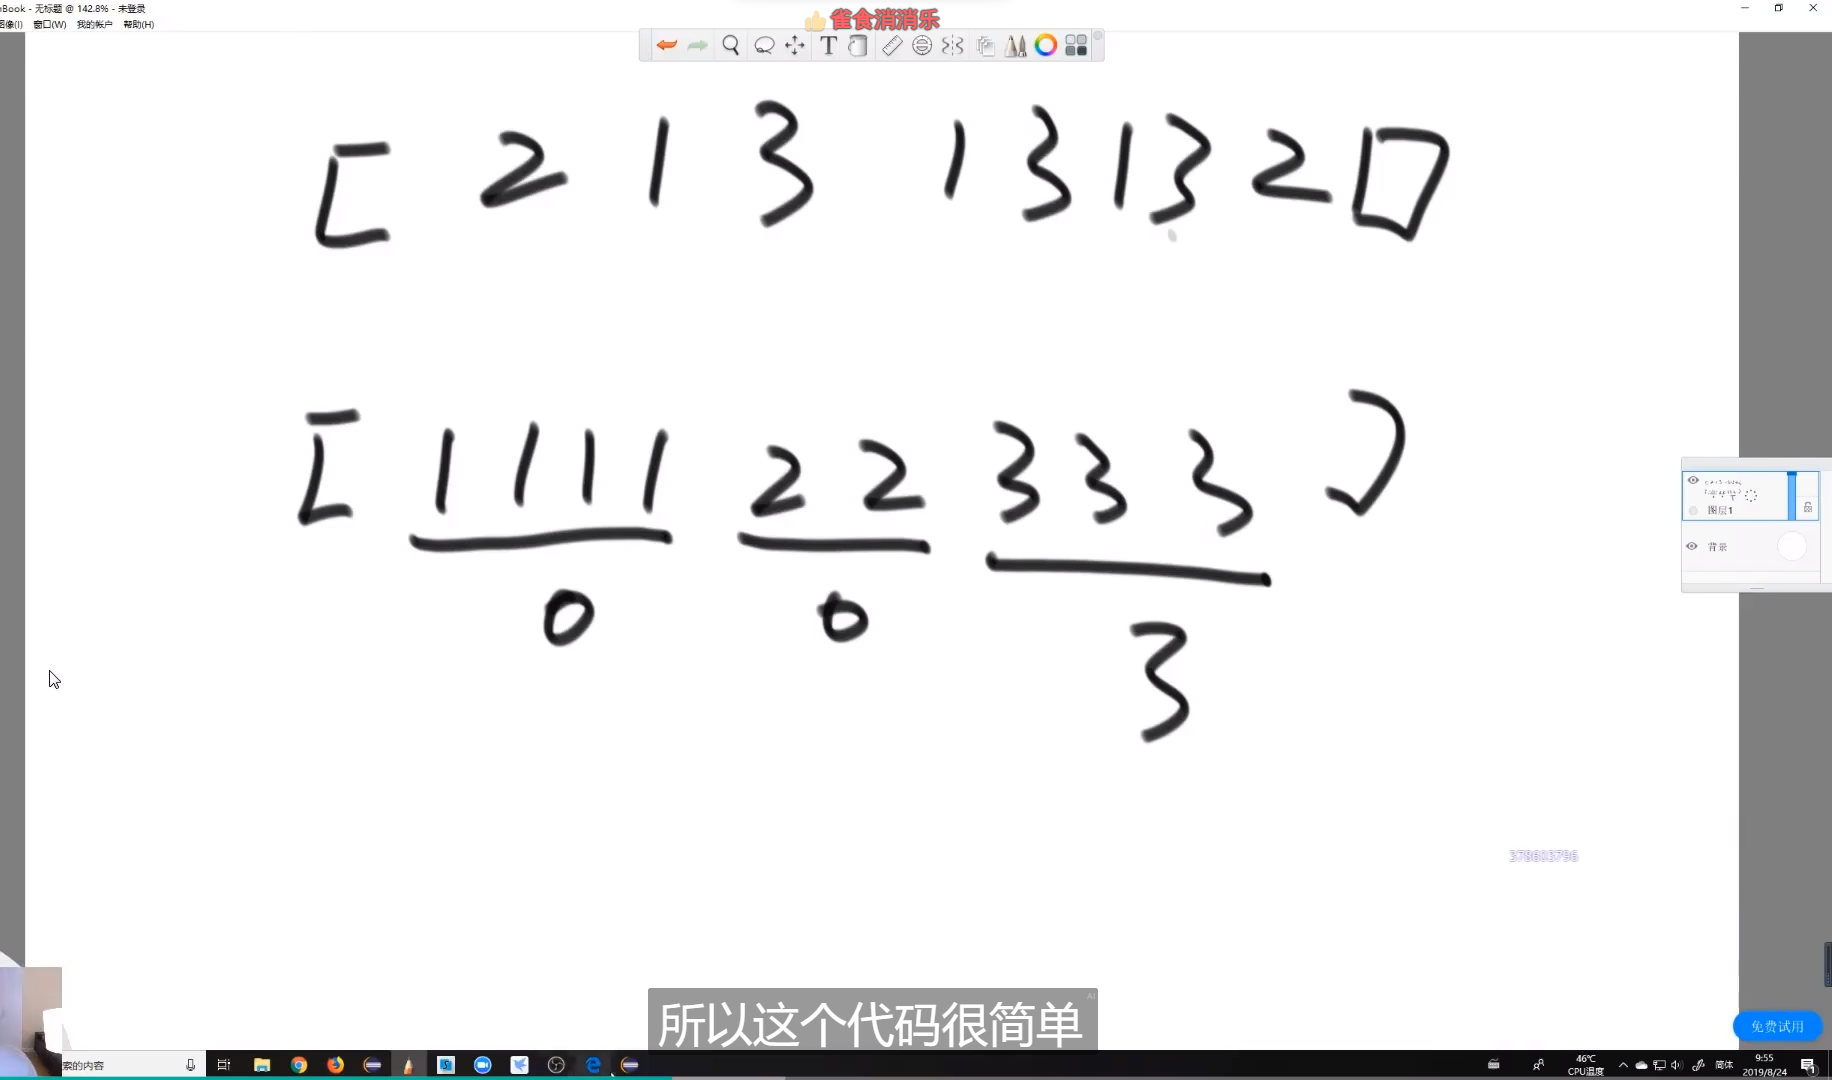 nBook - 无标题 @ 142.8% - 未登录
图像(I) 窗口(W) 我的帐户 帮助(H)
雀食消消乐
T
[ 2 1 3 1 3 1 3 2 ]
[ 1 1 1 1 2 2 3 3 3 ]
0 0 3
图层1
背景
378603796
所以这个代码很简单
AI
免费试用
索的内容
46℃
CPU温度
简体
9:55
2019/8/24
1